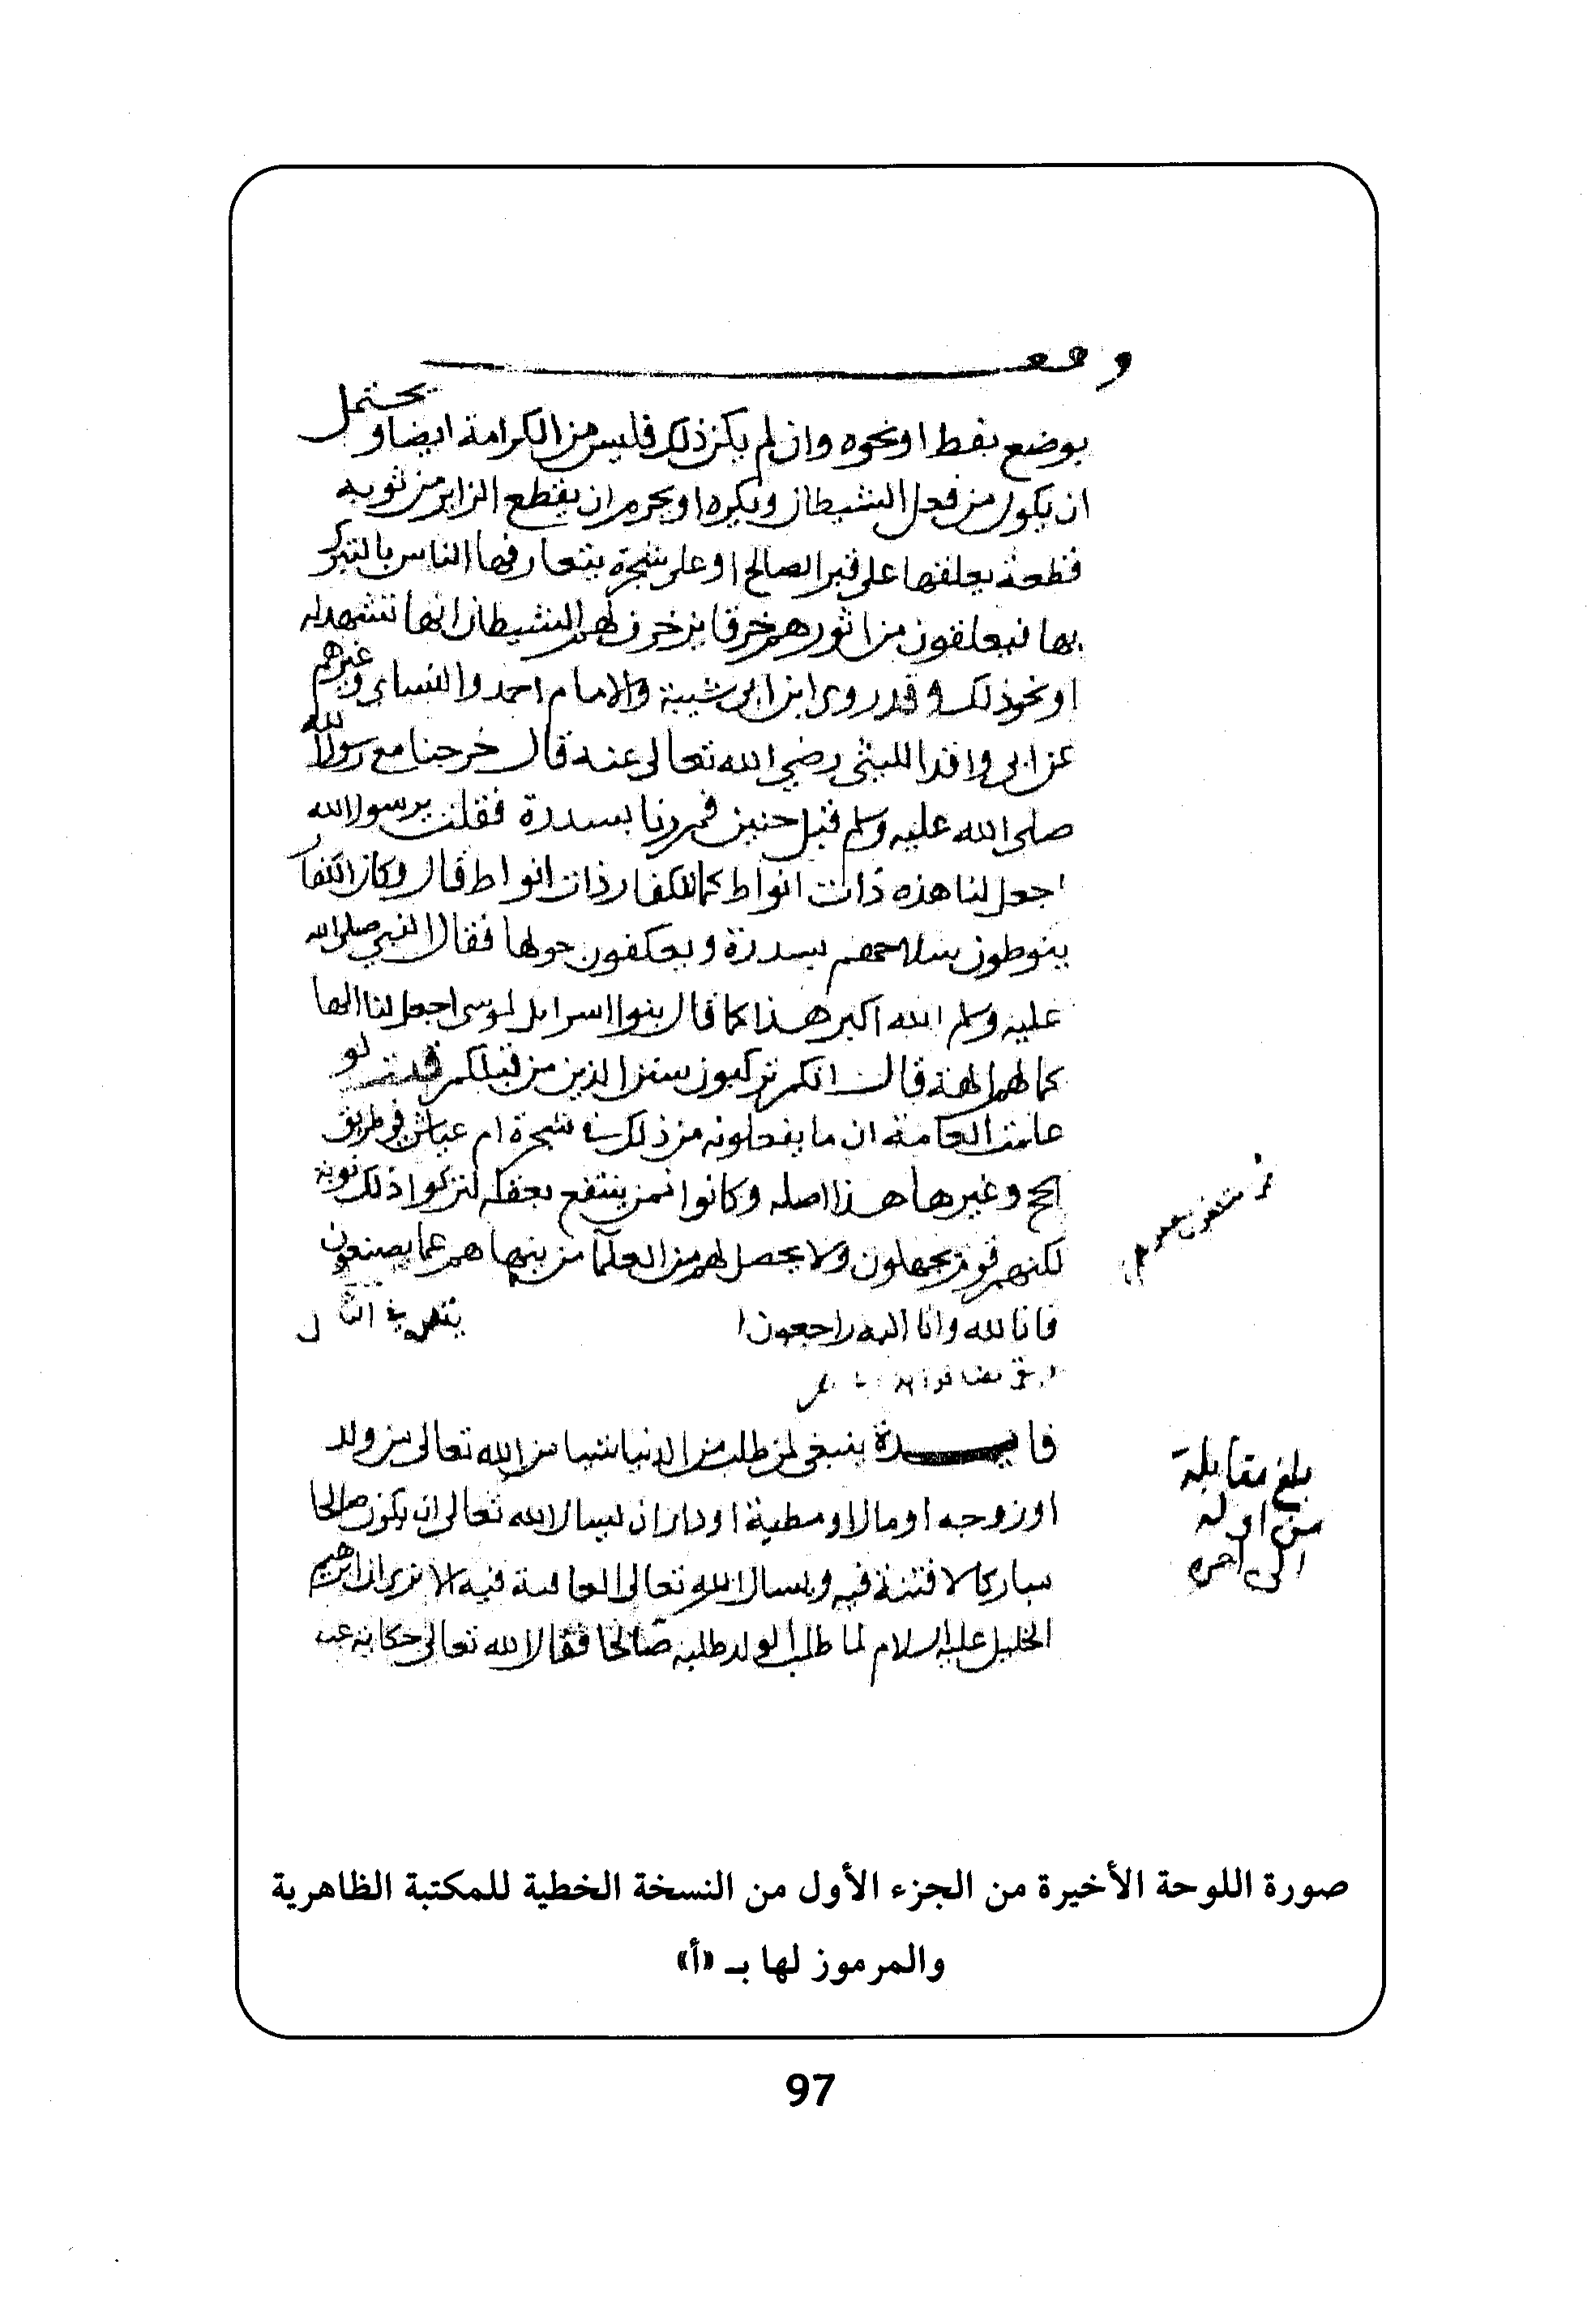 وقف
بوضع نفط او نحوه وان لم يكن ذلك فليس من الكرامة ايضا ويحتمل
ان يكون من فعل الشيطان ويكره او يحرم ان يقطع الزاير من ثوبه
قطعة يعلقها على قبر الصالح او على شجرة يتعارفها الناس بالتبرك
بها فيعلقون من اثورهم خرقا يزخرف لهم الشيطان انها تشهد له
او نحو ذلك وقد روى ابن ابى شيبة والامام احمد والنساى وغيرهم
عن ابى واقد الليثى رضي الله تعالى عنه قال خرجنا مع رسول الله
صلى الله عليه وسلم قبل حنين فمررنا بسدرة فقلت يرسول الله
اجعل لنا هذه ذات انواط كما للكفار ذات انواط قال وكان الكفار
ينوطون سلاحهم بسدرة ويعكفون حولها فقال النبي صلى الله
عليه وسلم الله اكبر هذا كما قال بنوا اسرايل لموسى اجعل لنا الها
كما لهم الهة قال انكم تركبون سنن الذين من قبلكم لو
علمت العامة ان ما يفعلونه من ذلك في شجرة ام عياش في طريق
الحج وغيرها هذا اصله وكانوا ممن ينتفع بعقله لتركوا ذلك توبة
لكنهم قوم يجهلون ولا يحصل لهم من العلماء من ينهاهم عما يصنعون
فانا لله وانا اليه راجعون
فايدة ينبغى لمن طلب من الدنيا شيا من الله تعالى من ولد
او زوجه او مال او مطية او دار ان يسال الله تعالى ان يكون صالحا
مباركا لا فتنة فيه ويسال الله تعالى العافية فيه الا ترى ان ابرهيم
الخليل عليه السلام لما طلب الولد طلبه صالحا فقال الله تعالى حكاية عنه
بلغ مقابلة
من اوله
الى اخره
صورة اللوحة الأخيرة من الجزء الأول من النسخة الخطية للمكتبة الظاهرية
والمرموز لها بـ «أ»
97